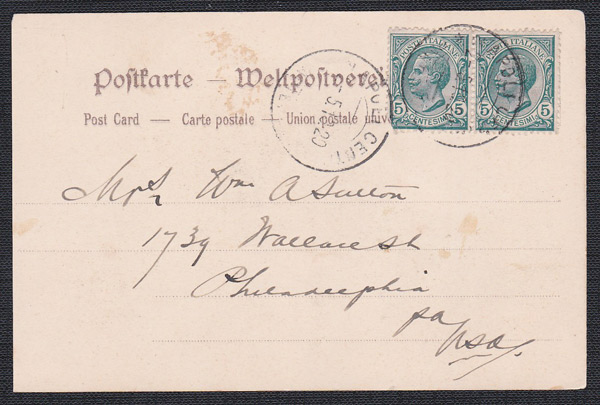 Postkarte — Weltpostverei
Post Card — Carte postale — Union postale unive
POSTE ITALIANE
5 5
CENTESIMI
POSTE ITALIANE
5 5
CENTESIMI
CENT.
Mrs Wm A Sutton
1739 Wallace St
Philadelphia
pa
Usa